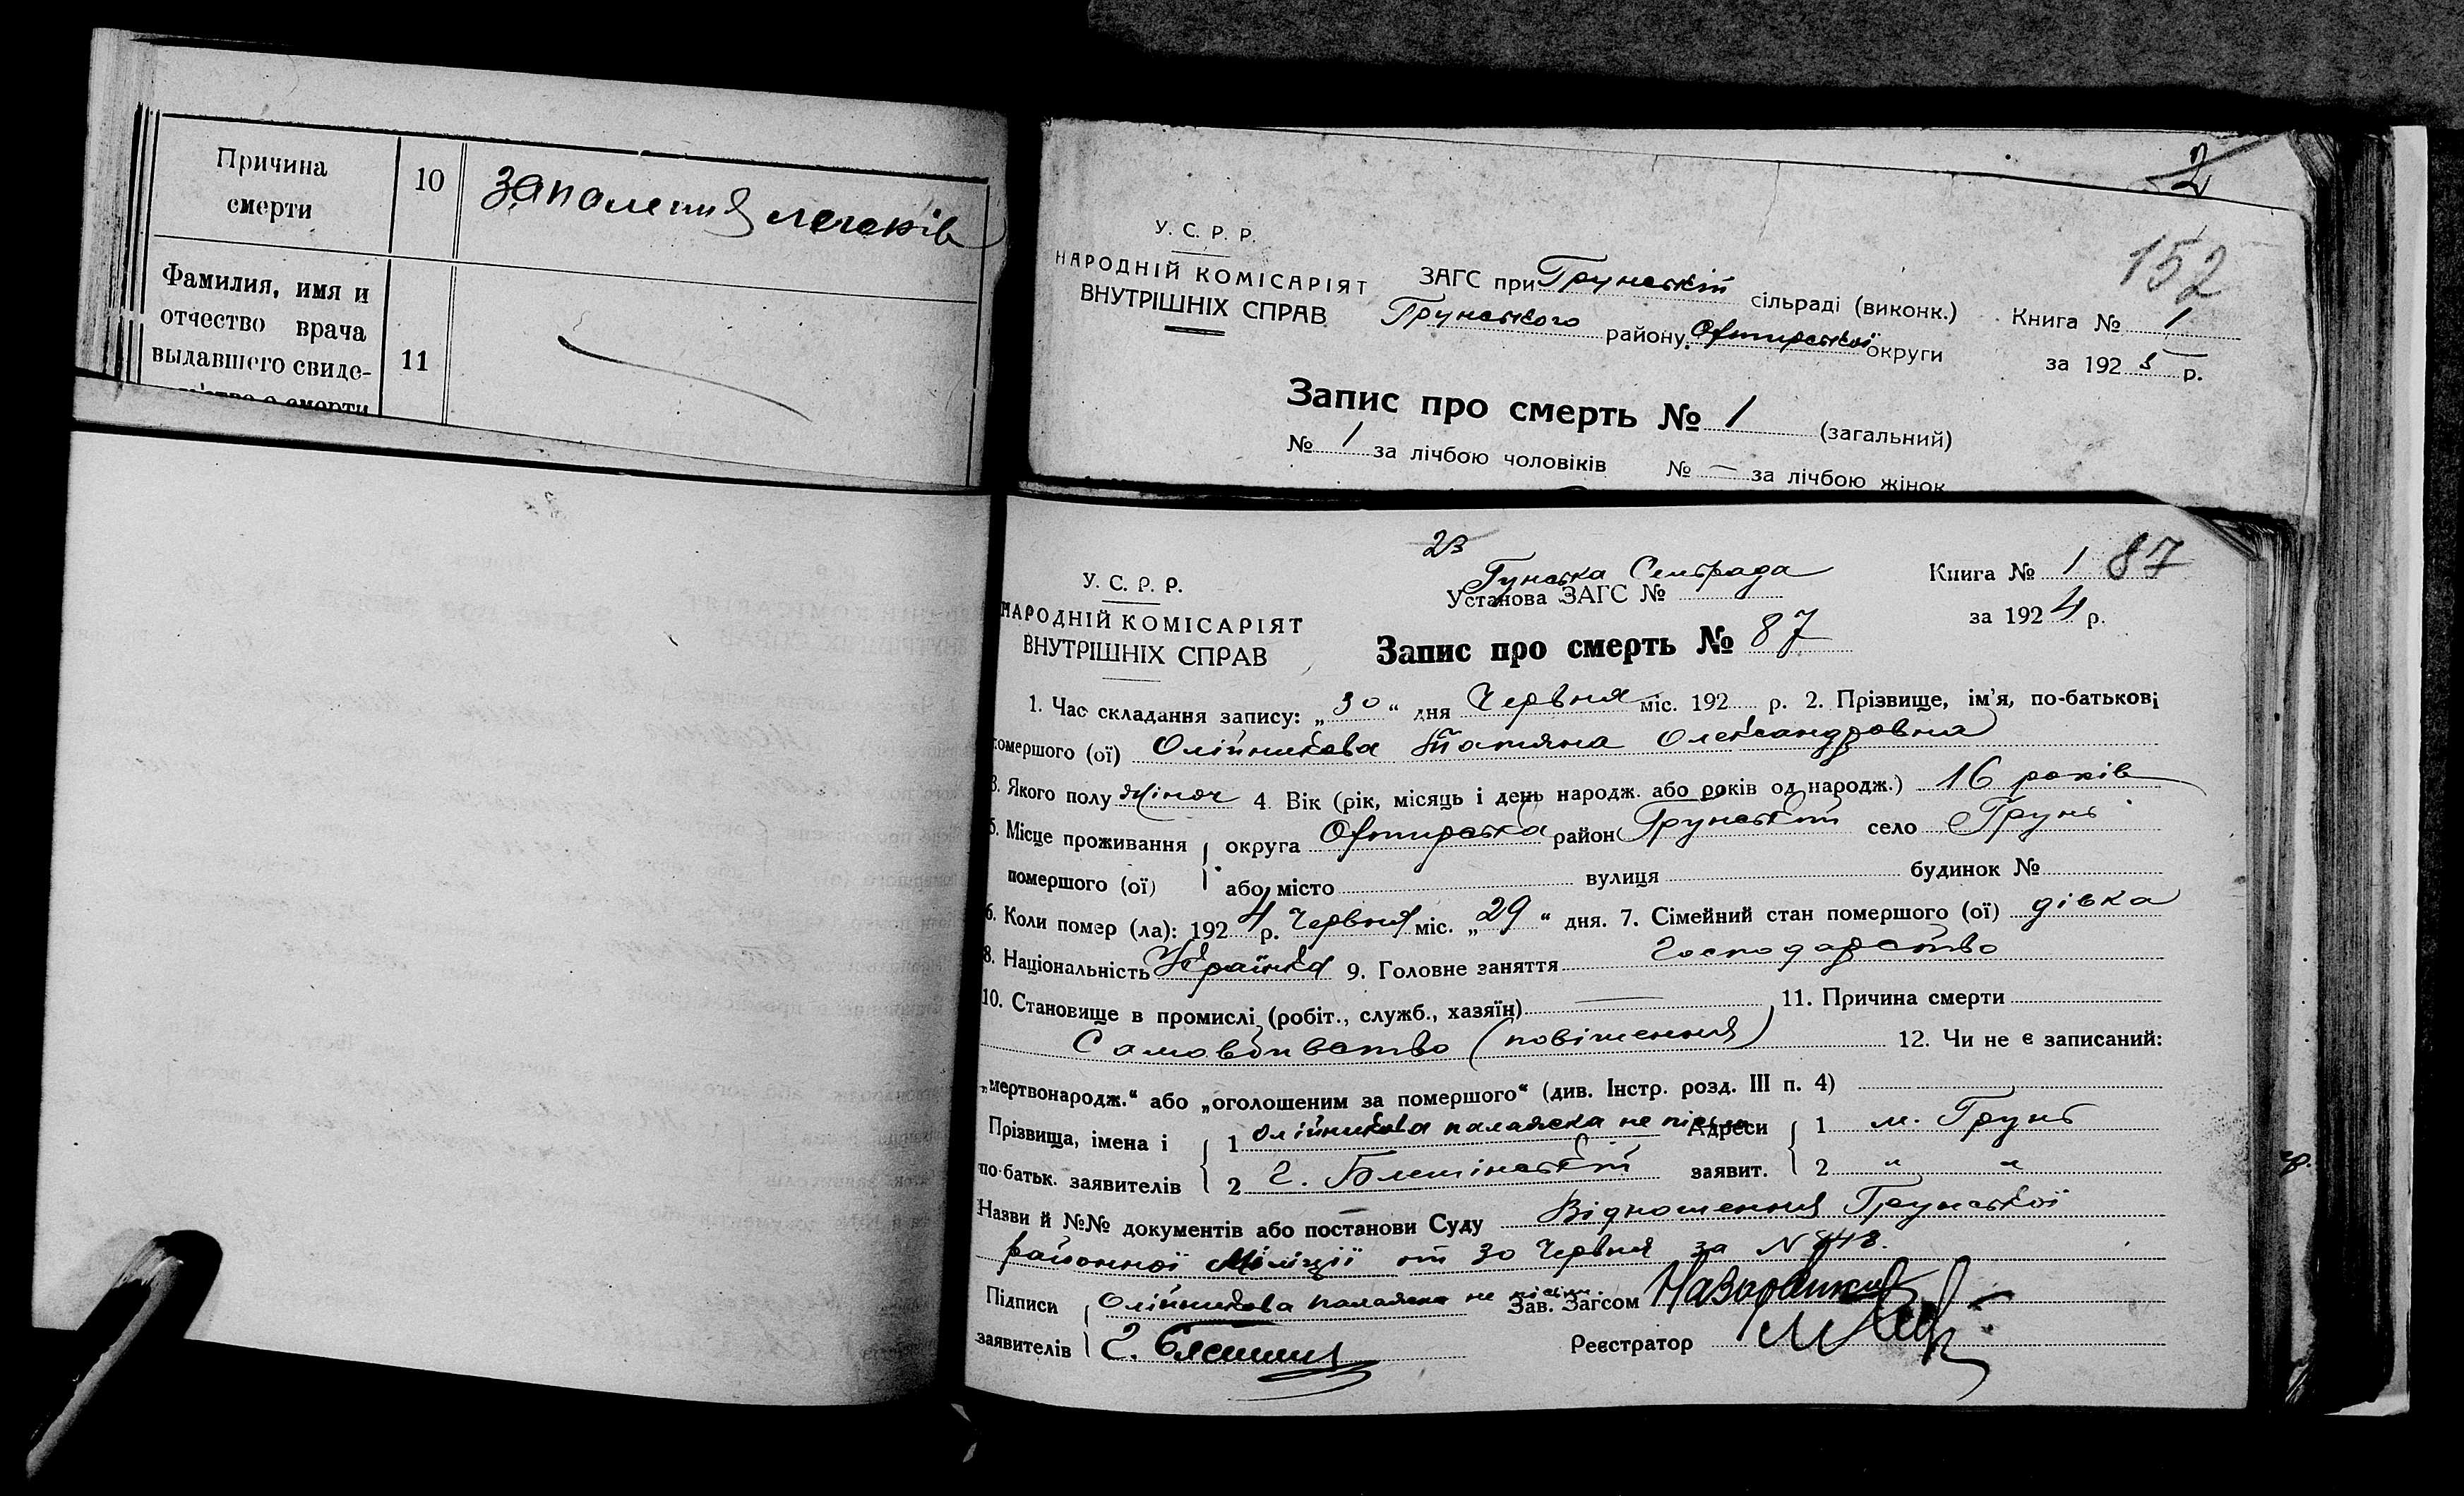 Причина смерти 10 запаления легеків
Фамилия, имя и
отчество врача
выдавшего свиде- 11
2
152
У. С. Р. Р.
НАРОДНІЙ КОМІСАРІЯТ
ВНУТРІШНІХ СПРАВ
ЗАГС при Грунській сільраді (виконк.)
Грунського району Охтирської округи
Книга № 1
за 1925 р.
Запис про смерть № 1 (загальний)
№ 1 за лічбою чоловіків № — за лічбою жінок
23
У. С. Р. Р.
НАРОДНІЙ КОМІСАРІЯТ
ВНУТРІШНІХ СПРАВ
Гунська Сельрада
Установа ЗАГС №
Книга № 1 87
за 1924 р.
Запис про смерть № 87
1. Час складання запису: „30“ дня Червня міс. 192 р. 2. Прізвище, ім'я, по-батькові
помершого (ої) Олійникова Татяна Олександровна
3. Якого полу жіноч 4. Вік (рік, місяць і день народж. або років од народж.) 16 років
5. Місце проживання округа Охтирська район Грунський село Грунь
помершого (ої) або місто вулиця будинок №
6. Коли помер (ла): 1924 р. Червня міс. „29“ дня. 7. Сімейний стан помершого (ої) дівка
8. Національність Українка 9. Головне заняття господарство
10. Становище в промислі (робіт., служб., хазяїн) — 11. Причина смерти
Самовбивство (повішення) 12. Чи не є записаний:
„мертвонародж.“ або „оголошеним за помершого“ (див. Інстр. розд. III п. 4)
Прізвища, імена і 1 Олійникова палажка не письм Адреси 1 м. Грунь
по-батьк. заявителів 2 Г. заявит. 2 " "
Назви й №№ документів або постанови Суду Відношення Грунської
районної Міліції от 30 Червня за N 848.
Підписи Олійникова палажка не письм. Зав. Загсом
заявителів Г. Реєстратор